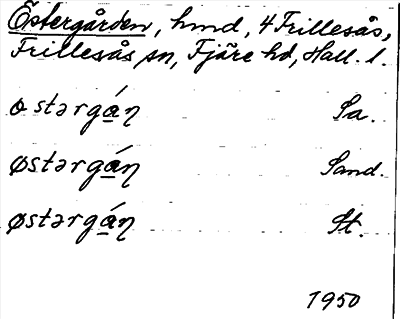 Östergården, hmd, 4 Frillesås,
Frillesås sn, Fjäre hd, Hall. l.
østərgá̱ƞ Sa.
østərgá̱ƞ Sand.
østərgá̱ƞ St.
1950